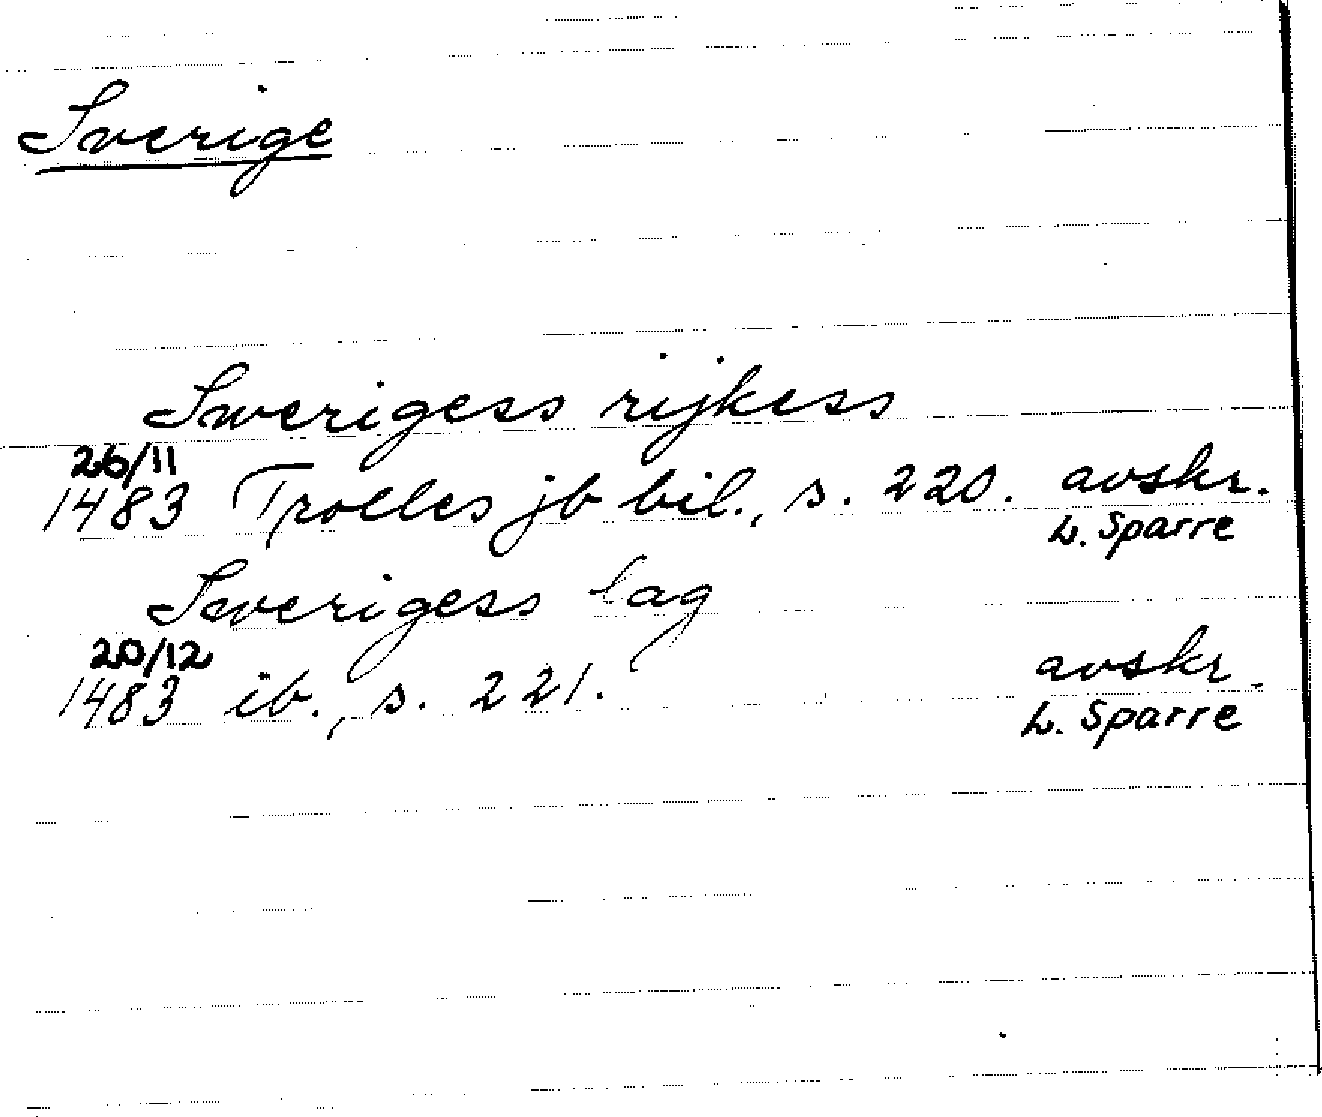 Sverige
Swerigess rijkess
26/11
1483 Trolles jb bil., s. 220. avskr.
L. Sparre
Swerigess lag
20/12
1483 ib., s. 221. avskr.
L. Sparre